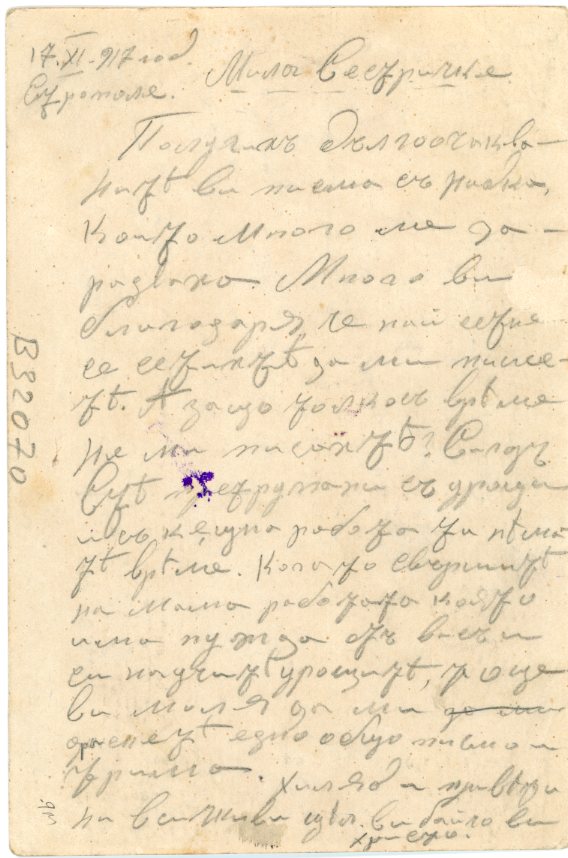 17.XI.917 год.
Етрополе.
Мили Сестрички
Получихъ дългоочаква-
нитѣ ви писма съ радост,
които много ме за-
радваха Много ви
благодаря, че най сетне
се сетихтѣ да ми пише-
тѣ. А защо толкось врѣме
не ми писахтѣ?
Стѣ претрупани съ уроци
и съ къщна работа та нѣма
тѣ врѣме. Когато свършитѣ
на мама работата която
има нужда отъ васъ и
си научитѣ уроцитѣ, то още
ви моля да ми да ми
едно общо писмо и
Хиляди привѣти
на всички ви цѣл. ви байо ви
Христо.
В32070